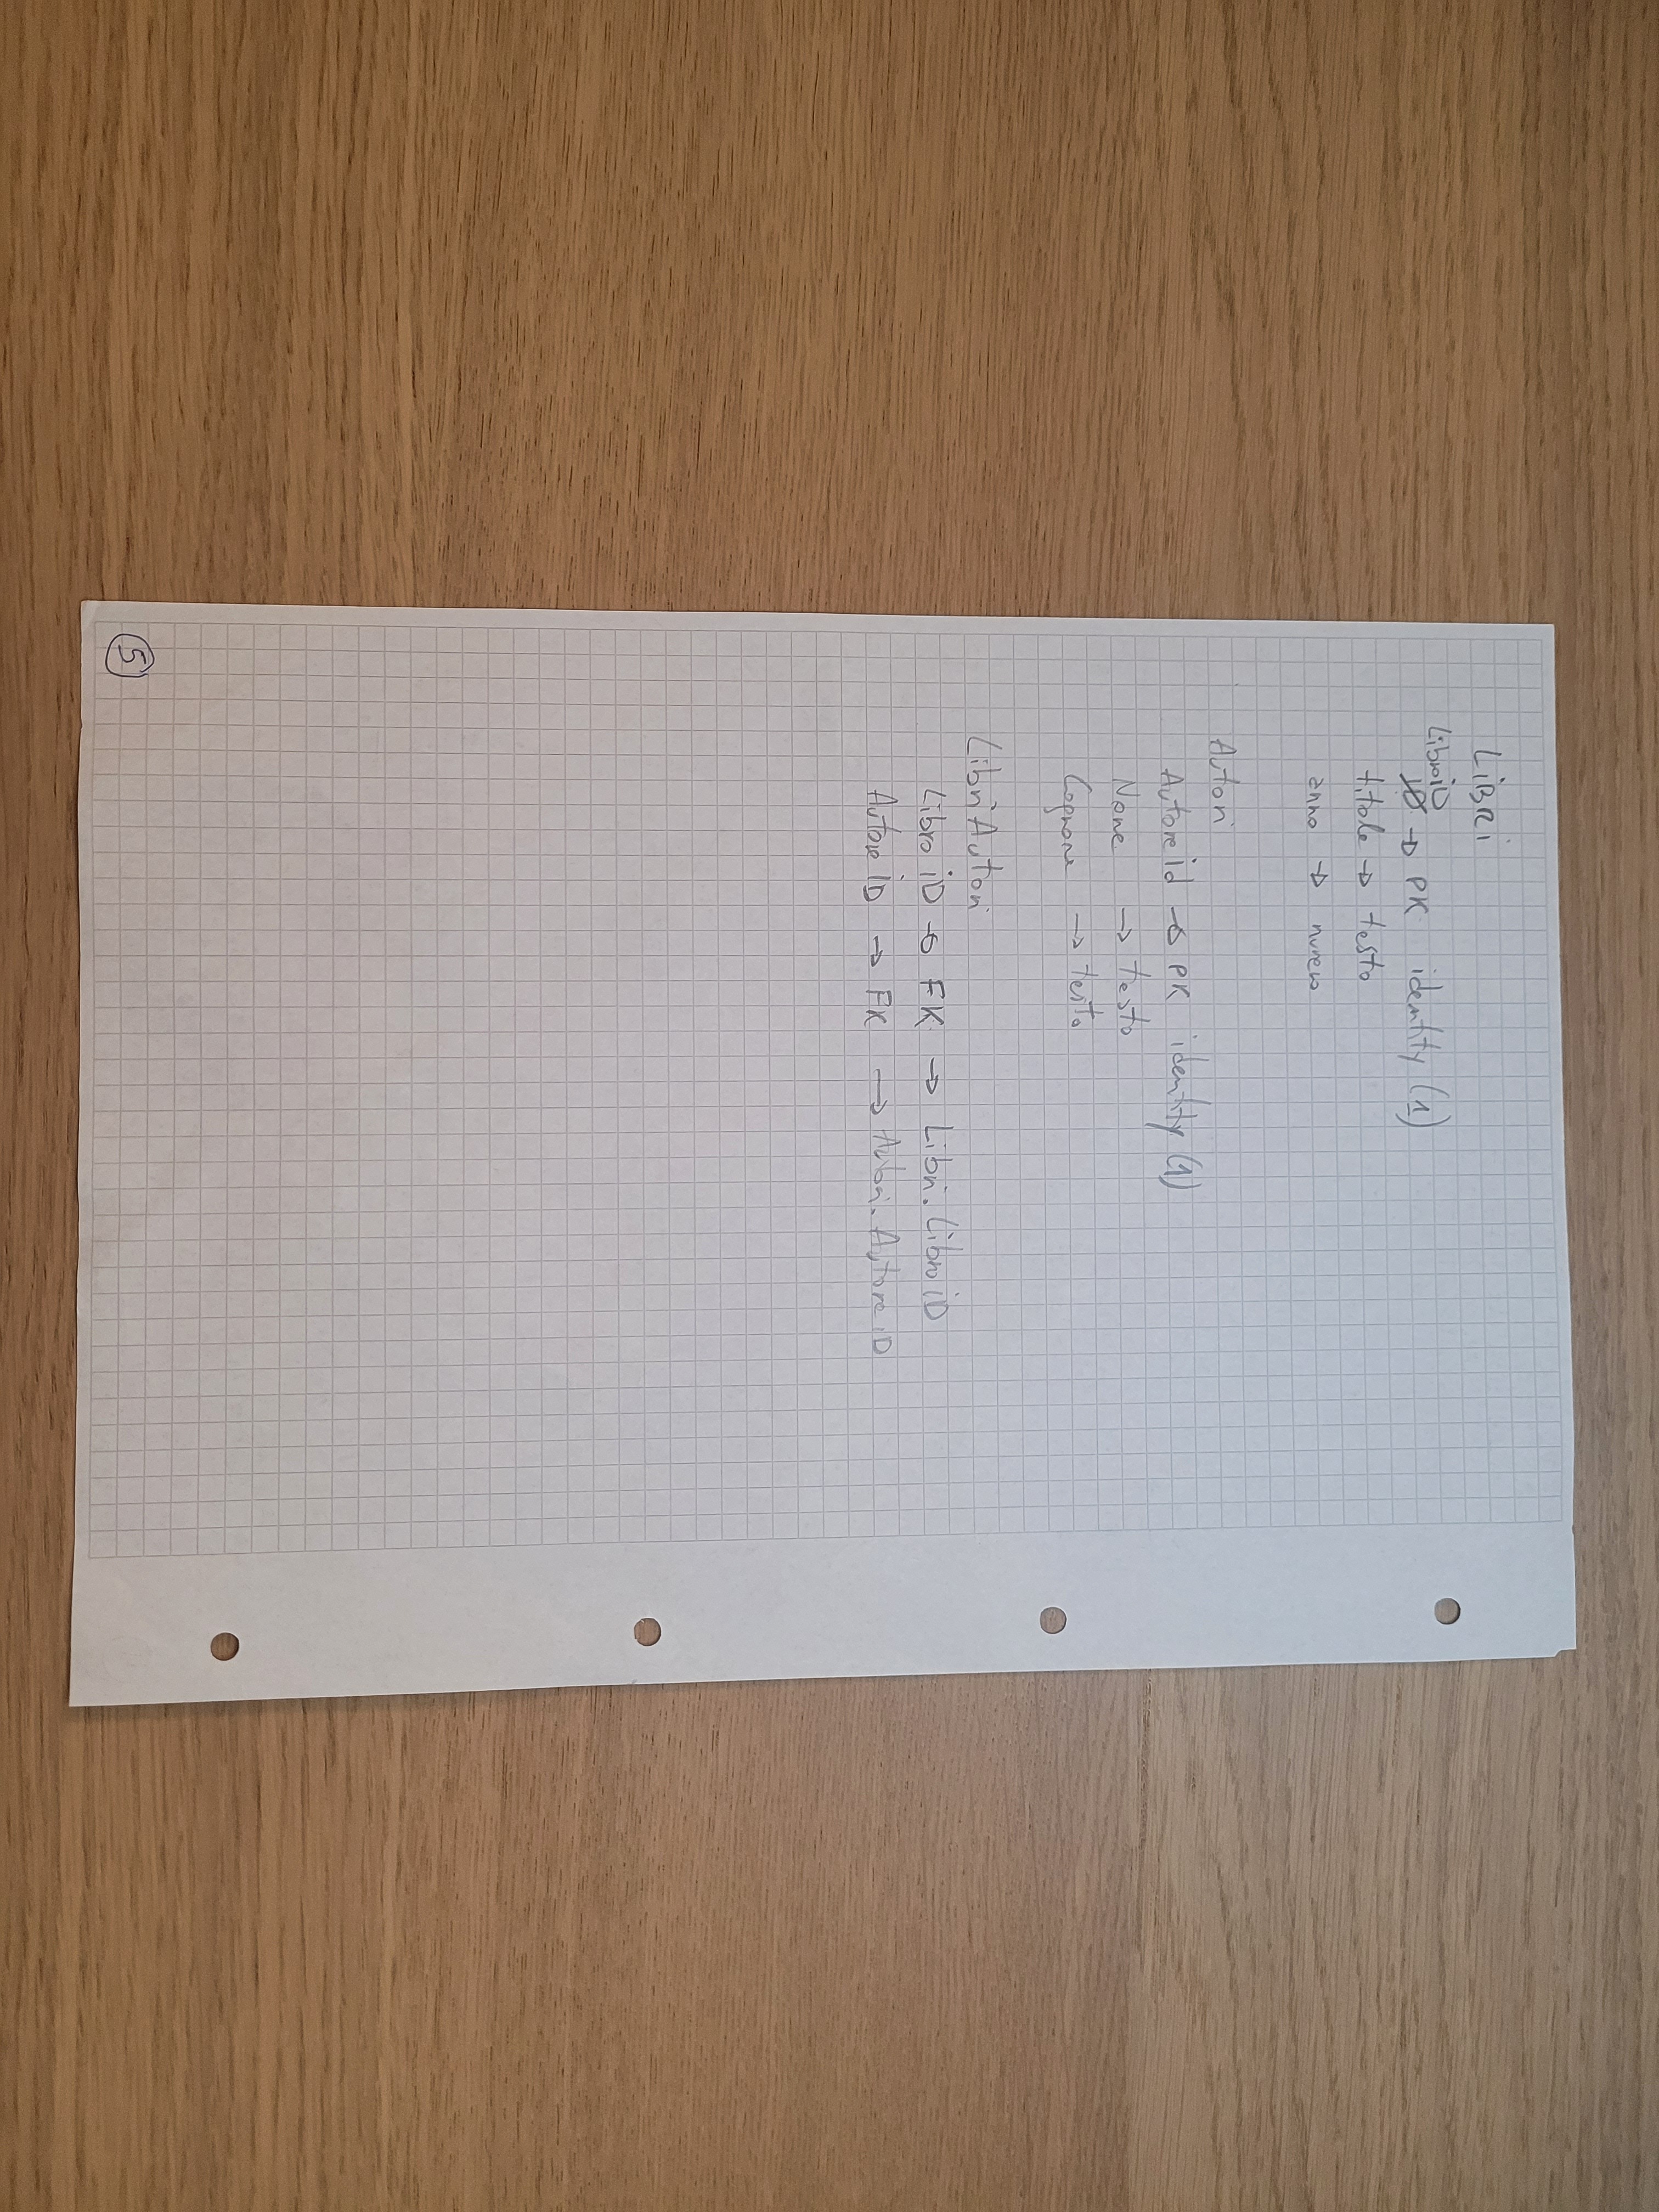 LiBRi
LibroiD
ID → PK identity (1)
titolo → testo
anno → numero
Autori
Autore id → PK identity (1)
Nome → testo
Cognome → testo
Libri Autori
Libro iD → FK → Libri. Libro iD
Autore iD → FK → Autori. Autore iD
5